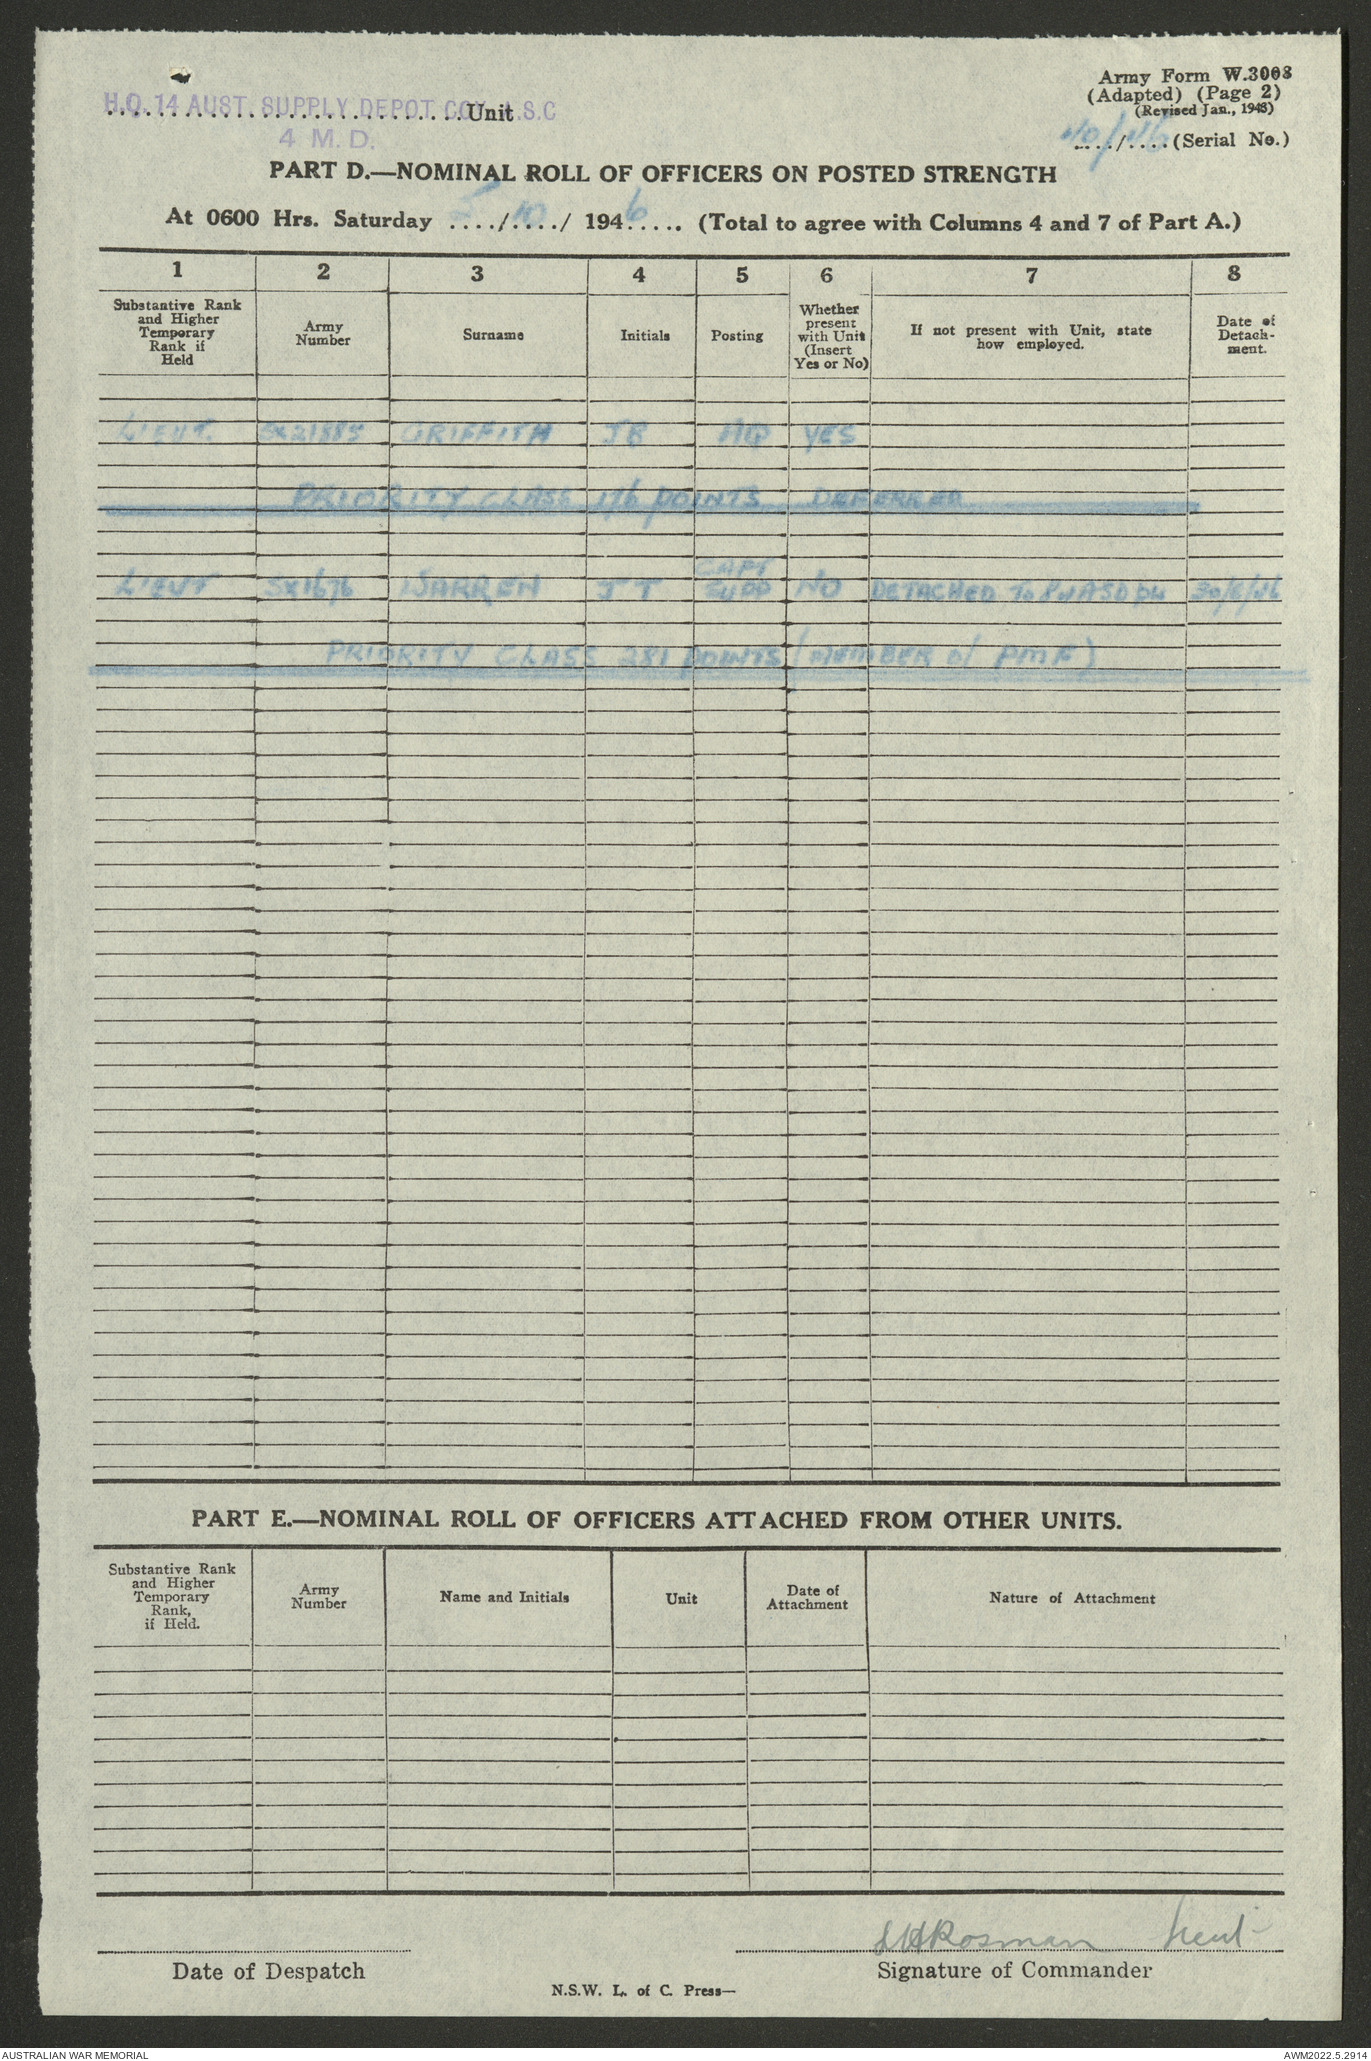 H.Q. 14 AUST. SUPPLY DEPOT COY. A.S.C
Unit
4 M.D.
Army Form W.3008
(Adapted) (Page 2)
(Revised Jan., 1943)
40/46 (Serial No.)
PART D.—NOMINAL ROLL OF OFFICERS ON POSTED STRENGTH
At 0600 Hrs. Saturday 5/10/ 1946 (Total to agree with Columns 4 and 7 of Part A.)
1 2 3 4 5 6 7 8
Substantive Rank and Higher Temporary Rank if Held
Army Number
Surname
Initials
Posting
Whether present with Unit (Insert Yes or No)
If not present with Unit, state how employed.
Date of Detachment.
LIEUT. SX21885 GRIFFITH JR AQ YES
PRIORITY CLASS 176 POINTS DEFERRED
CAPT
LIEUT SX1676 WARREN JT SUPP NO DETACHED TO 30/6/46
PRIORITY CLASS 281 POINTS (MEMBER of PMF)
PART E.—NOMINAL ROLL OF OFFICERS ATTACHED FROM OTHER UNITS.
Substantive Rank and Higher Temporary Rank, if Held.
Army Number
Name and Initials
Unit
Date of Attachment
Nature of Attachment
Rosman Lieut
Date of Despatch
Signature of Commander
N.S.W. L. of C. Press—
AUSTRALIAN WAR MEMORIAL
AWM2022.5.2914